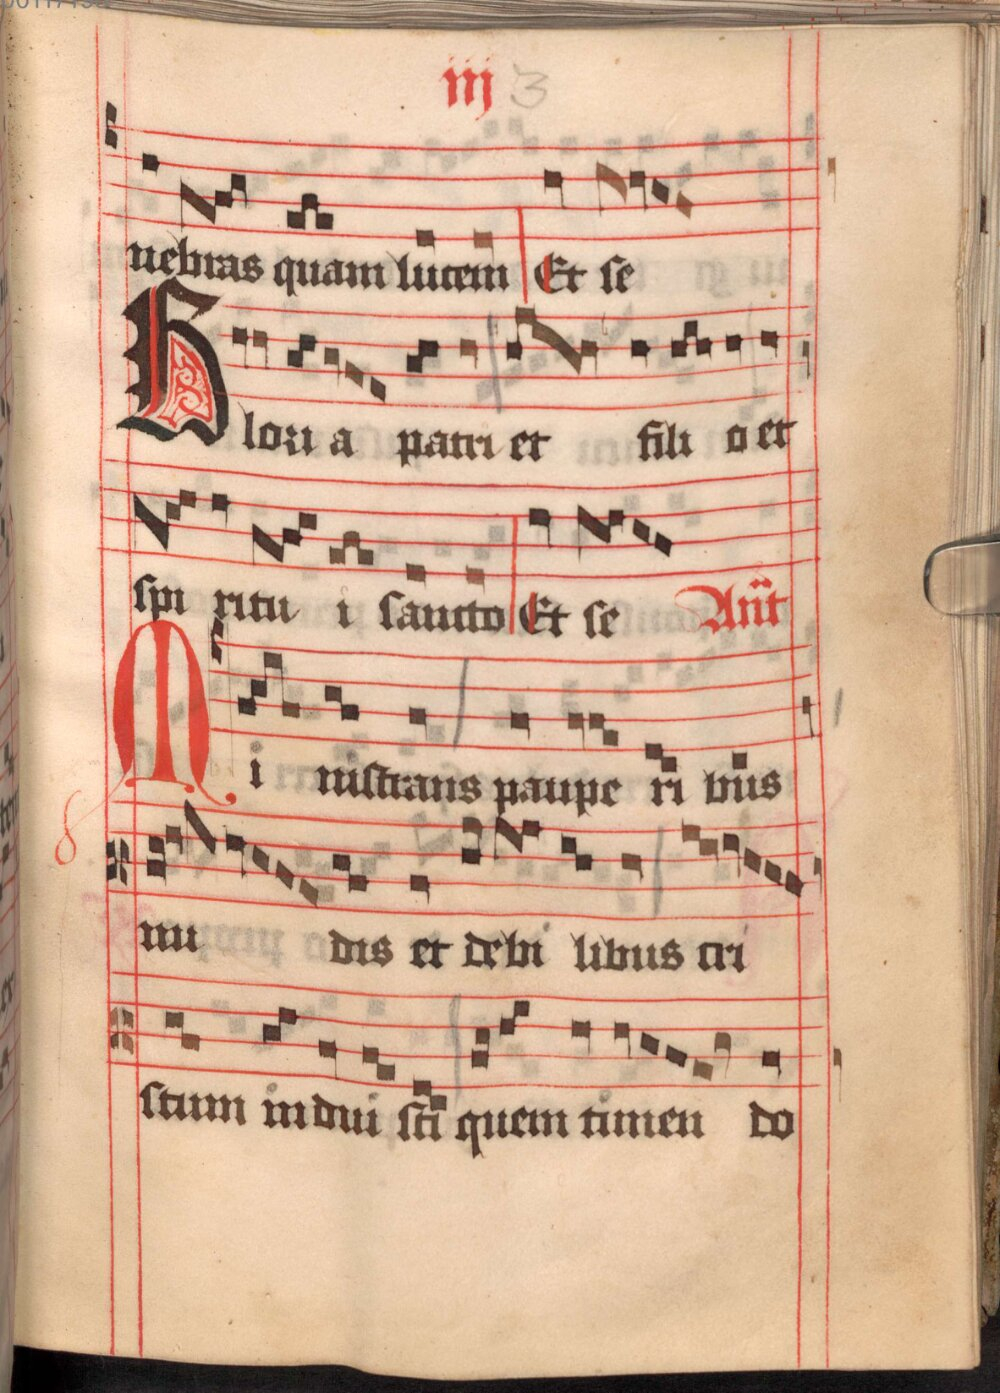 iij 3
nebras quam lucem Et se
Glori a patri et fili o et
spi ritu i sancto Et se Ant
Mi nistrans paupe ri bus
8
nu dis et debi libus cri
stum indui sti quem timen do